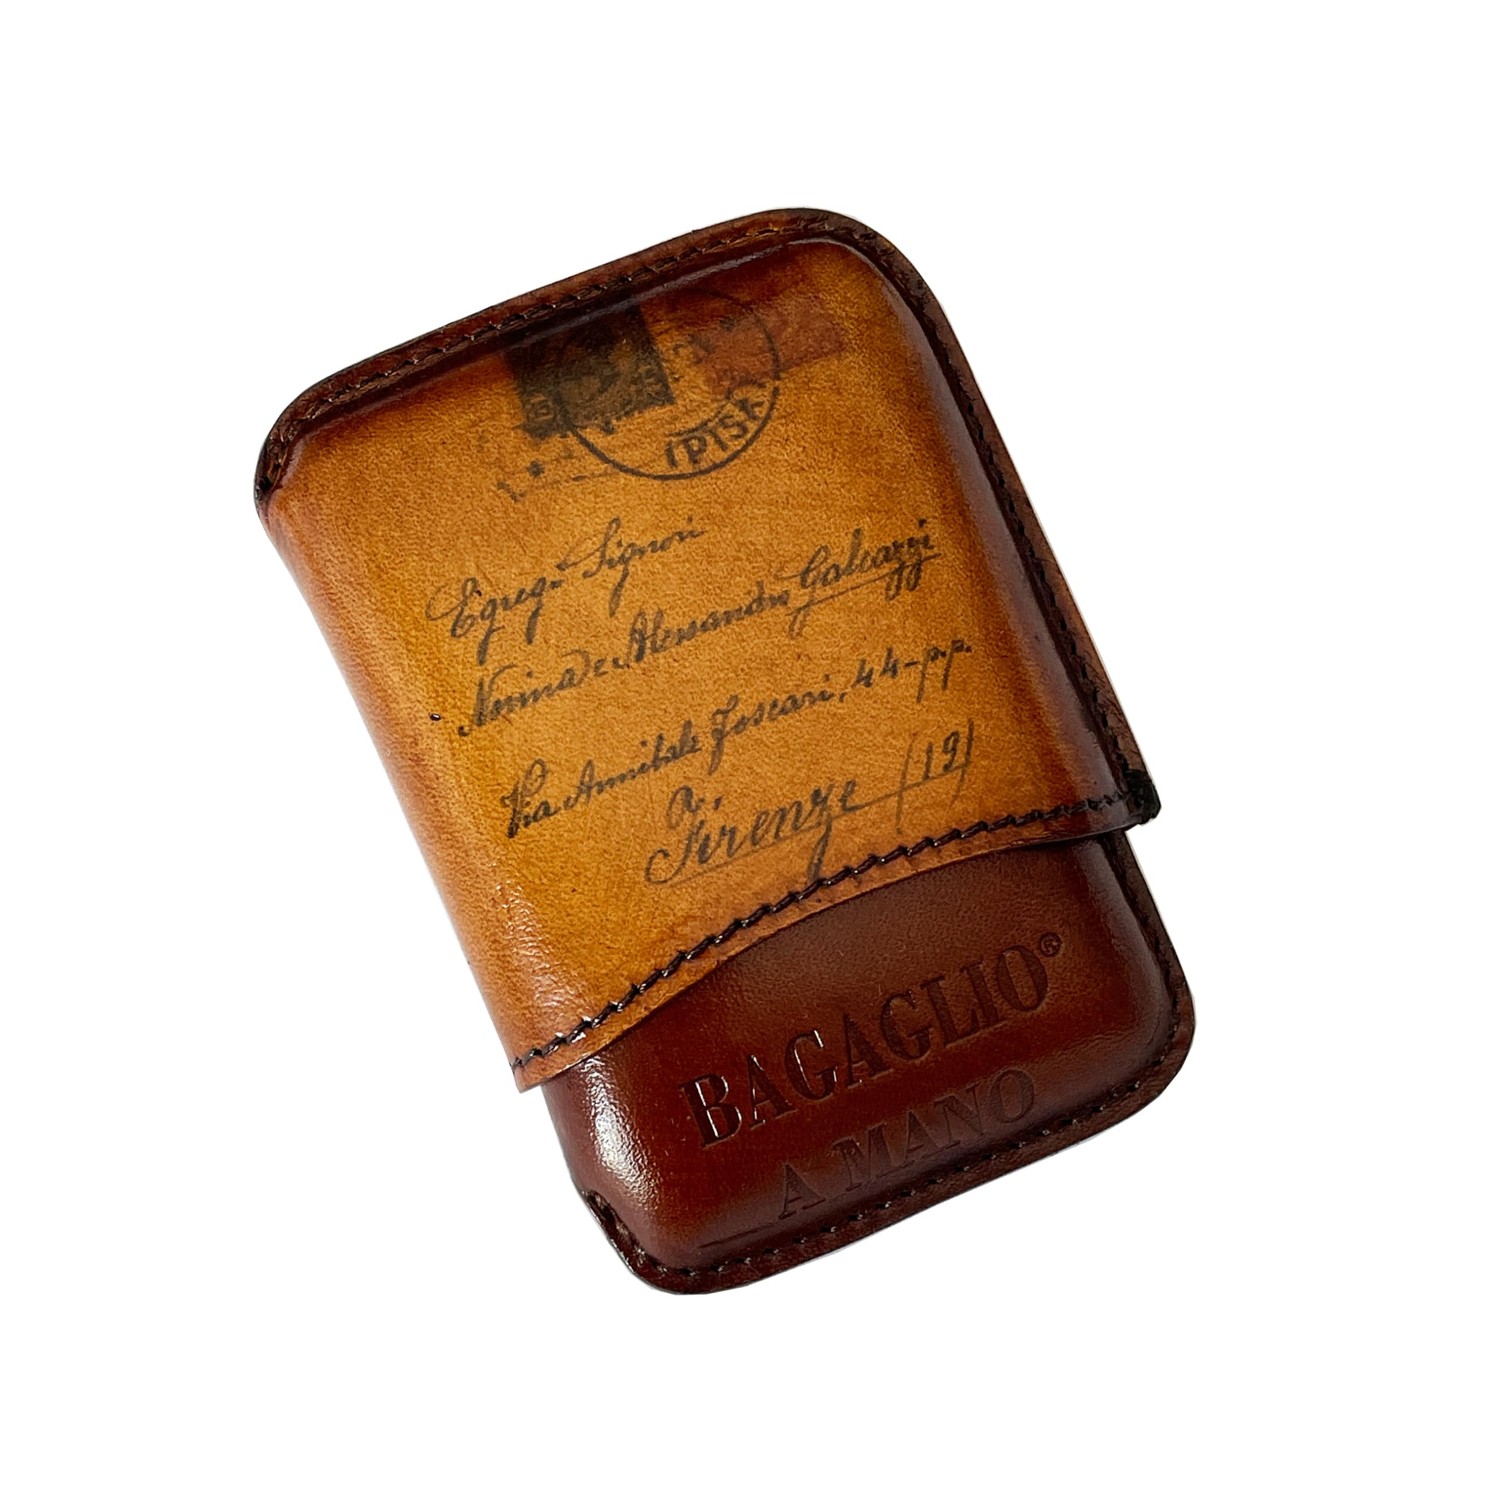 (PISA
Egregi Signori
Nerina e Alessandro Galeazzi
Via Annibale Foscari, 44-p.p.
a,
Firenze (19)
BAGAGLIO®
A MANO